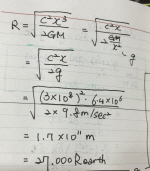 R = √(c²x³/2GM) = √(c²x/(2 GM/x²)) → g
= √(c²x/2g)
= √((3×10⁸)² 6.4×10⁶/(2 × 9.8 m/sec²))
= 1.7 × 10¹¹ m
= 27,000 Rearth